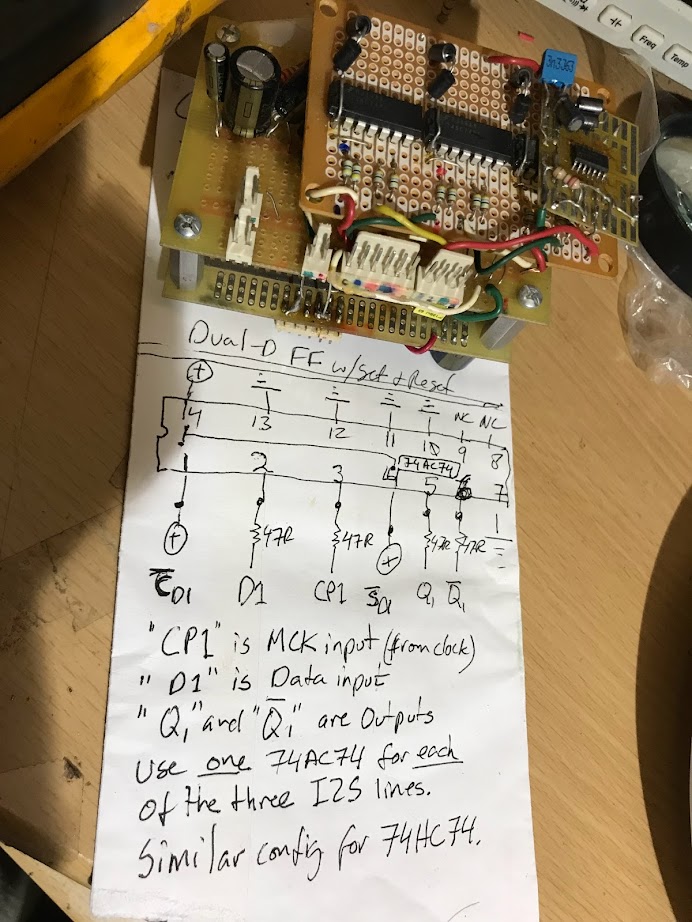 Freq
Temp
3n3J63
Dual-D FF w/Set + Reset
+
14 13 12 11 10 9 8
NC NC
74AC74
1 2 3 4 5 6 7
47R 47R 47R 47R
+ +
C̅D1 D1 CP1 S̅D1 Q1 Q̅1
"CP1" is MCK input (from clock)
"D1" is Data input
"Q1" and "Q̅1" are Outputs
Use one 74AC74 for each
of the three I2S lines.
Similar config for 74HC74.